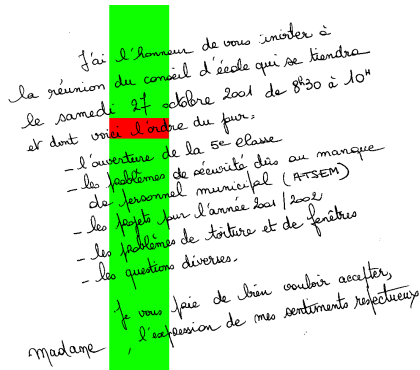 J'ai l'honneur de vous inviter à
la réunion du conseil d'école qui se tiendra
le samedi 27 octobre 2001 de 8h30 à 10H
et dont voici l'ordre du jour.
- l'ouverture de la 5e classe
- les problèmes de sécurité dûs au manque
de personnel municipal (ATSEM)
- les projets pour l'année 2001/2002
- les problèmes de toiture et de fenêtres
- les questions diverses.
Je vous prie de bien vouloir accepter,
Madame, l'expression de mes sentiments respectueux